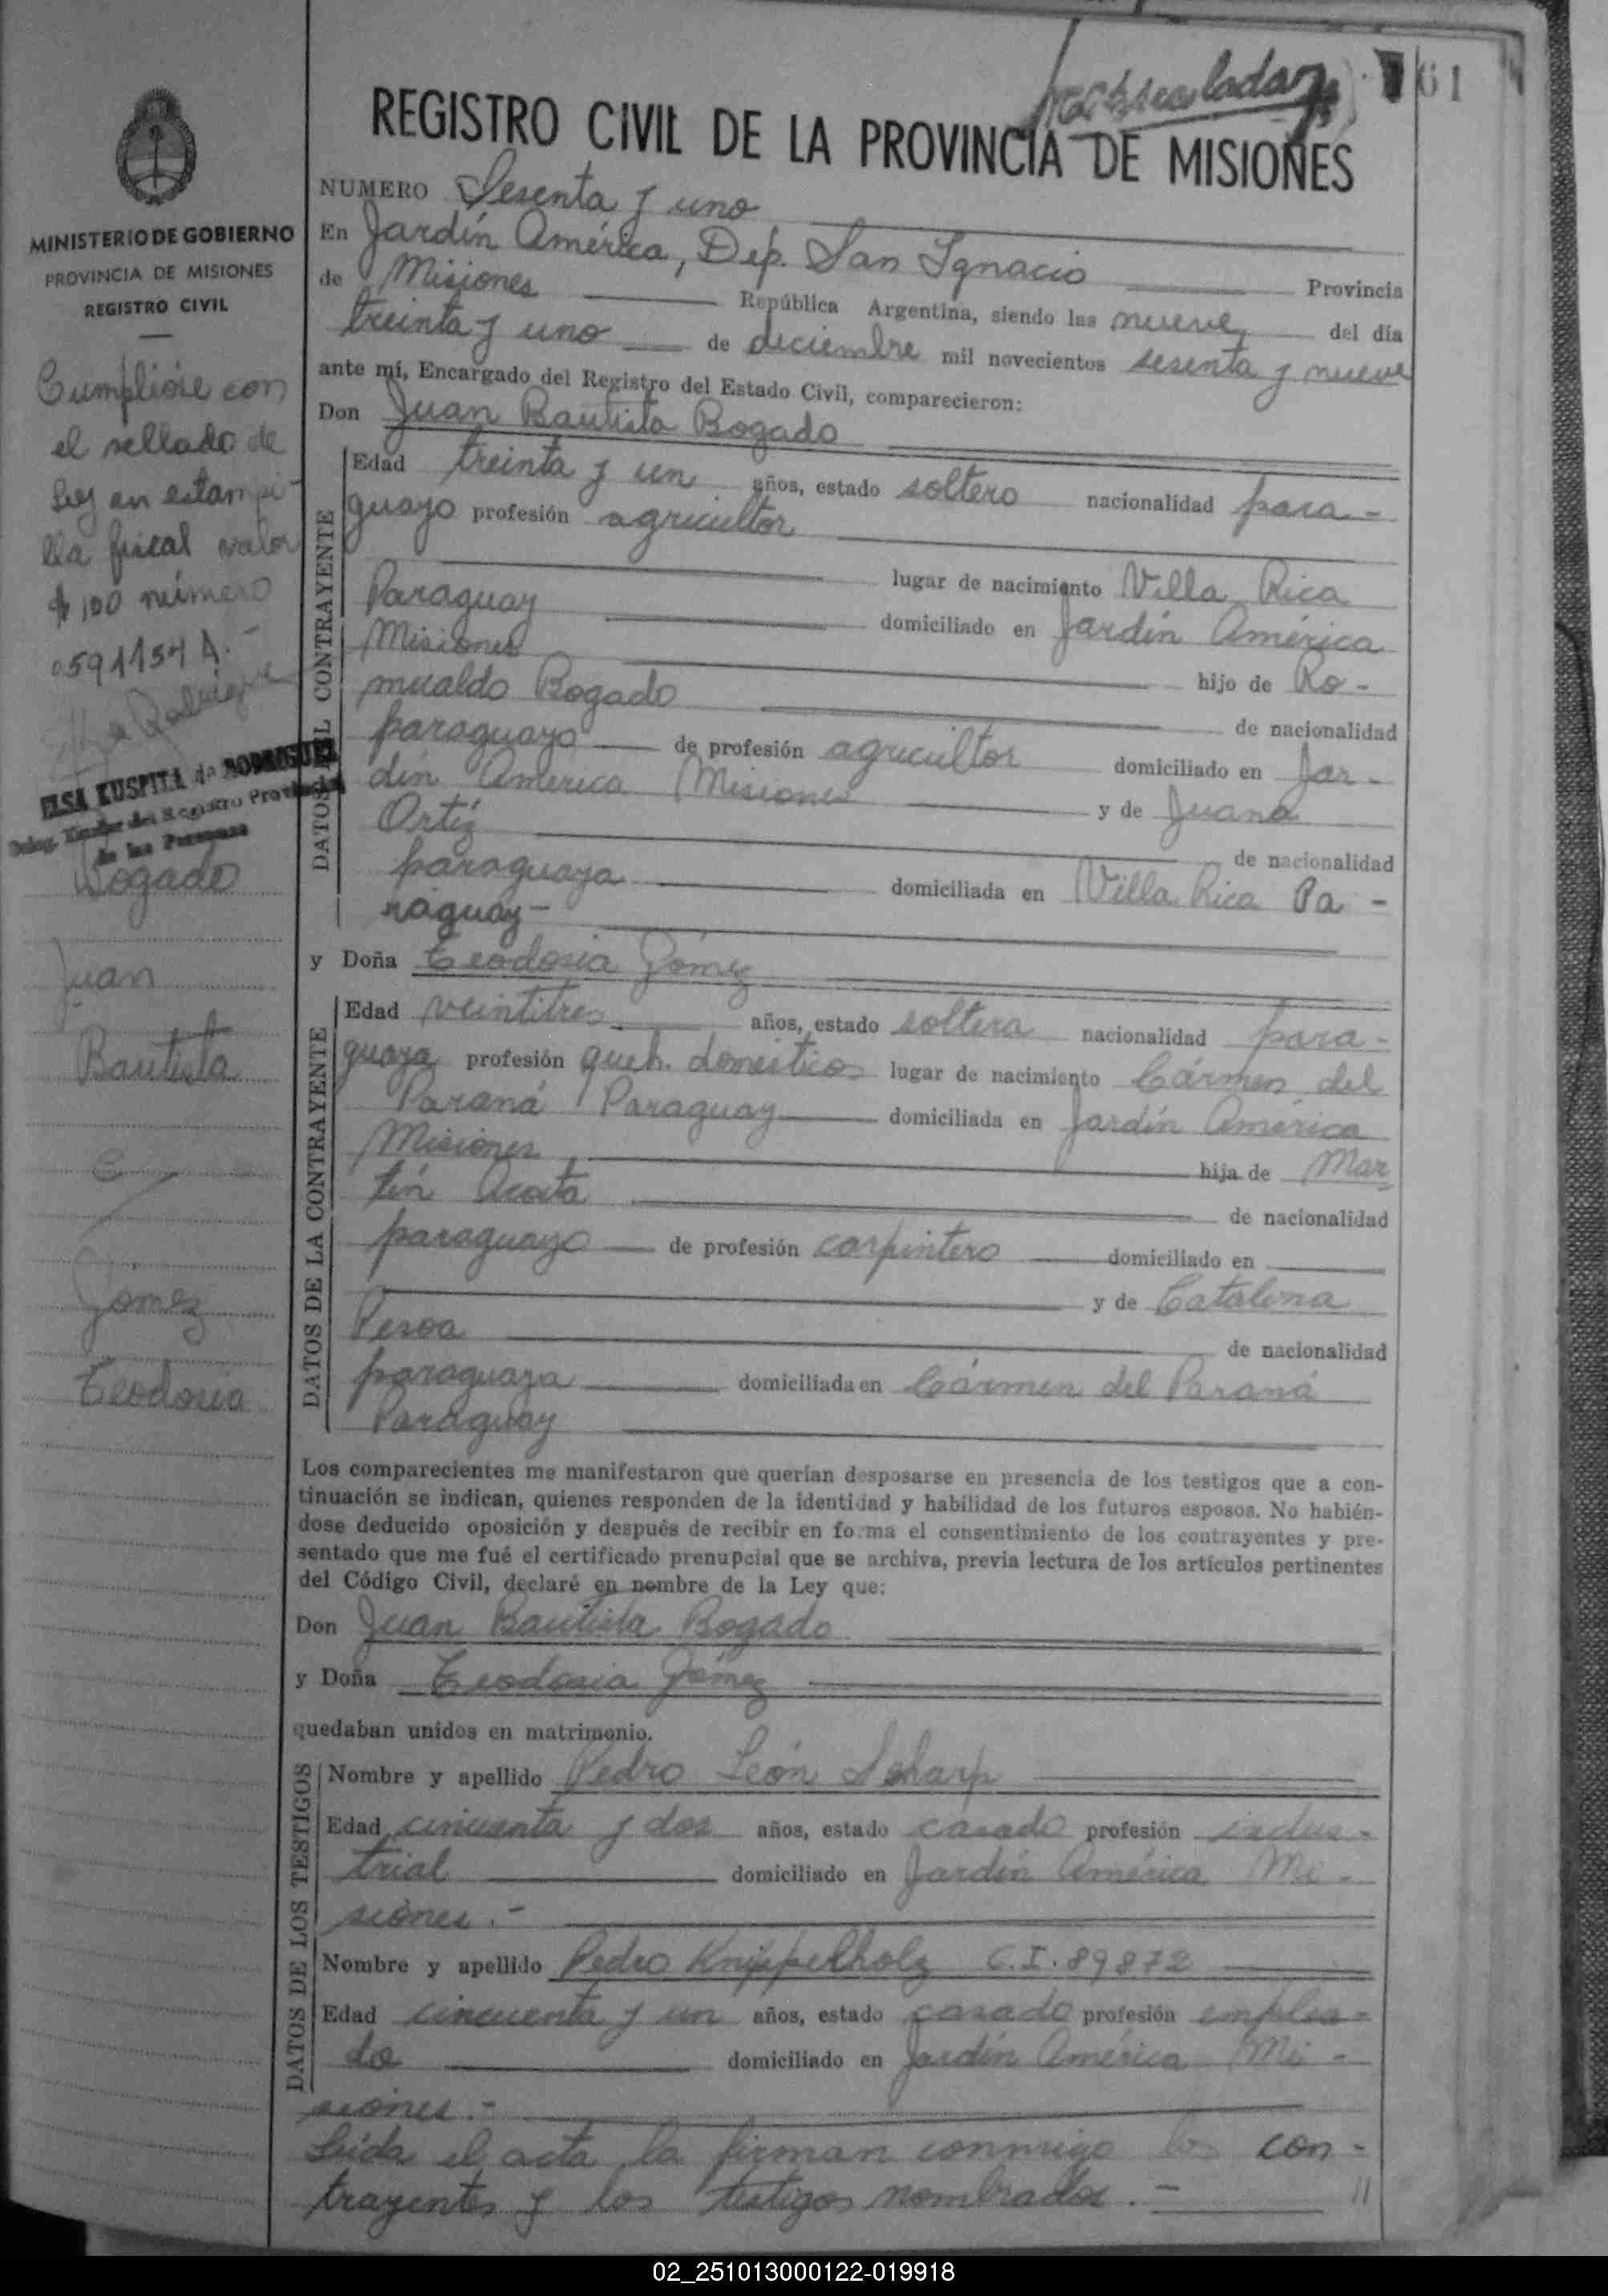 61
REGISTRO CIVIL DE LA PROVINCIA DE MISIONES
MINISTERIO DE GOBIERNO
PROVINCIA DE MISIONES
REGISTRO CIVIL
Cumplióse con
el sellado de
Ley en estampi-
lla fiscal valor
$ 100 número
0591154 A.-
ELSA KUSPITA de RODRIGUEZ
Deleg. Titular del Registro Provincial
de las Personas
Bogado
Juan
Bautista
c/
Gómez
Teodosia
NUMERO Sesenta y uno
En Jardín América, Dep. San Ignacio Provincia
de Misiones República Argentina, siendo las nueve, del día
treinta y uno de diciembre mil novecientos sesenta y nueve
ante mí, Encargado del Registro del Estado Civil, comparecieron:
Don Juan Bautista Bogado
DATOS DEL CONTRAYENTE
Edad treinta y un años, estado soltero nacionalidad para-
guayo profesión agricultor
lugar de nacimiento Villa Rica
Paraguay domiciliado en Jardín América
Misiones hijo de Ro-
mualdo Bogado de nacionalidad
paraguayo de profesión agricultor domiciliado en Jar-
dín América Misiones y de Juana
Ortíz de nacionalidad
paraguaya domiciliada en Villa Rica Pa-
raguay-
y Doña Teodosia Gómez
DATOS DE LA CONTRAYENTE
Edad veintitres años, estado soltera nacionalidad para-
guaya profesión queh. domésticos lugar de nacimiento Cármen del
Paraná Paraguay domiciliada en Jardín América
Misiones hija de Mar
tín Acosta de nacionalidad
paraguayo de profesión carpintero domiciliado en
y de Catalina
Pesoa de nacionalidad
paraguaya domiciliada en Cármen del Paraná
Paraguay
Los comparecientes me manifestaron que querían desposarse en presencia de los testigos que a con-
tinuación se indican, quienes responden de la identidad y habilidad de los futuros esposos. No habién-
dose deducido oposición y después de recibir en forma el consentimiento de los contrayentes y pre-
sentado que me fué el certificado prenupcial que se archiva, previa lectura de los artículos pertinentes
del Código Civil, declaré en nombre de la Ley que:
Don Juan Bautista Bogado
y Doña Teodosia Gómez
quedaban unidos en matrimonio.
DATOS DE LOS TESTIGOS
Nombre y apellido Pedro León Scharp
Edad cincuenta y dos años, estado casado profesión indus-
trial domiciliado en Jardín América Mi-
siones.-
Nombre y apellido Pedro Knippelholz C.I. 89872
Edad cincuenta y un años, estado casado profesión emplea-
do domiciliado en Jardín América Mi-
siones.-
Leída el acta la firman conmigo los con-
trayentes y los testigos nombrados.- //
02_251013000122-019918